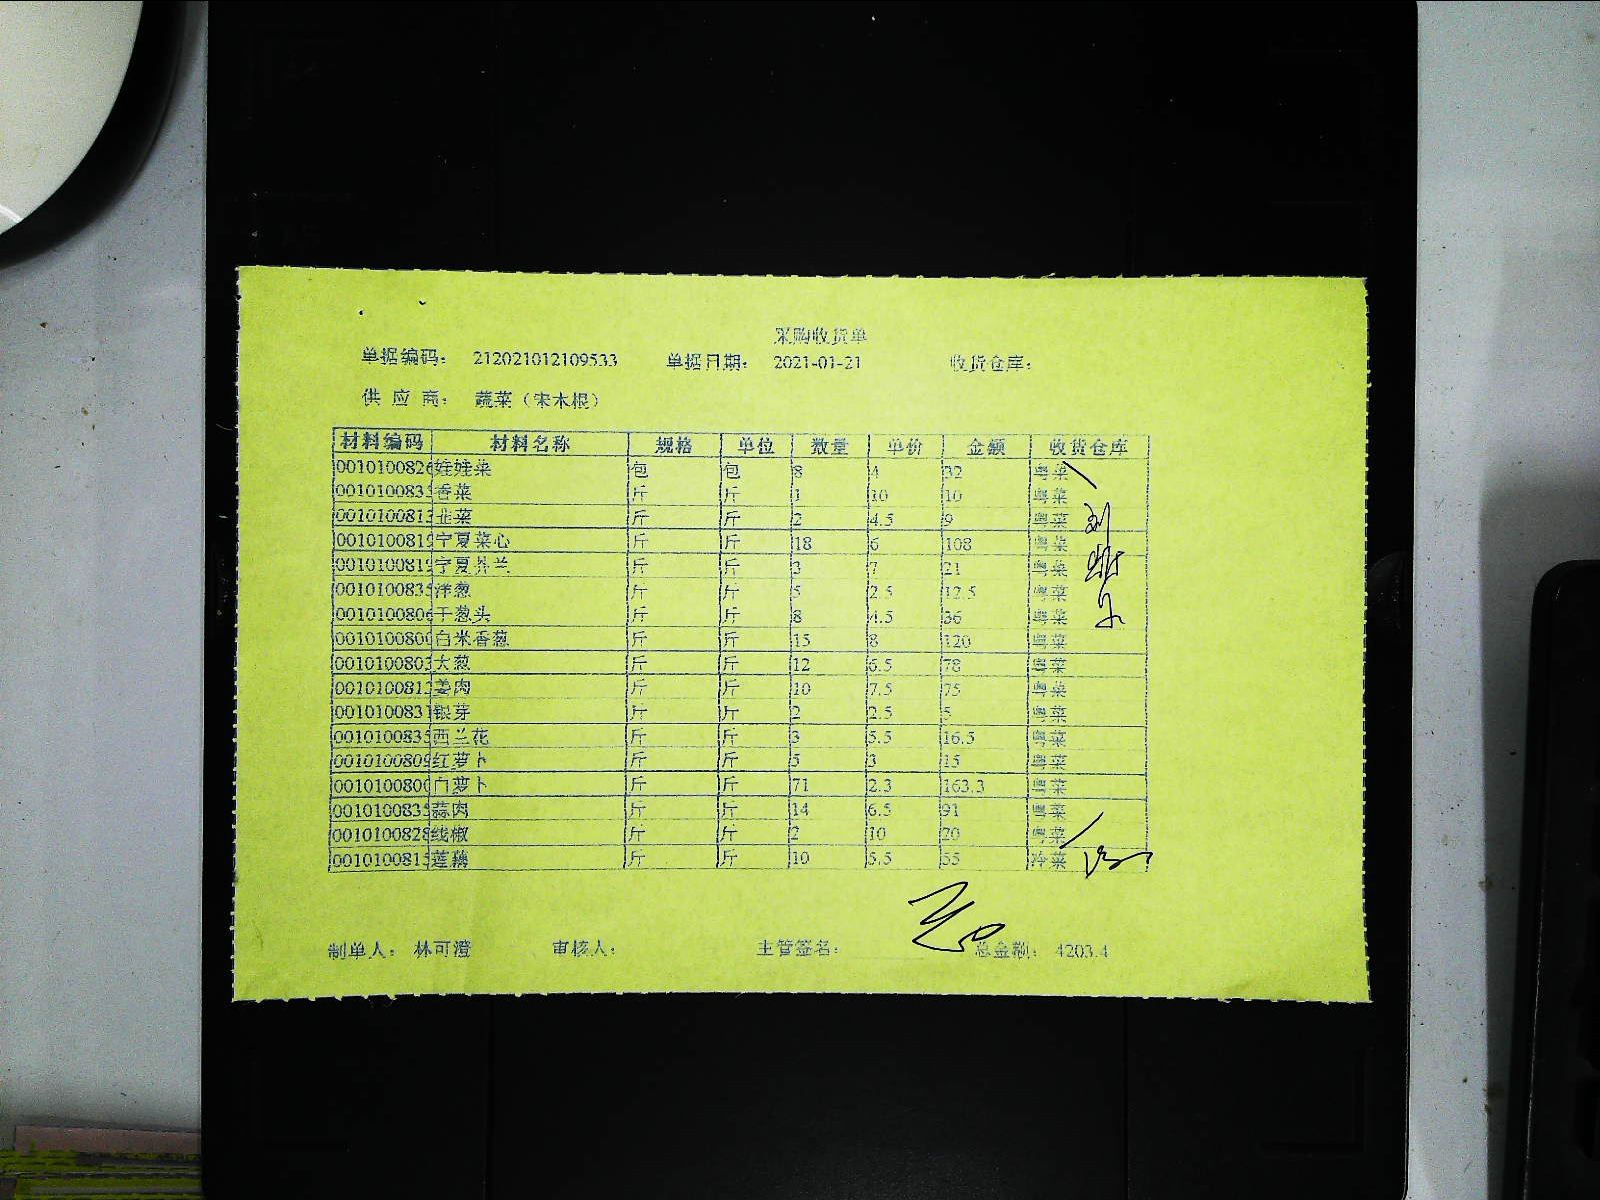 采购收货单
单据编码： 212021012109533 单据日期： 2021-01-21 收货仓库：
供 应 商： 蔬菜（宋木根）
材料编码 材料名称 规格 单位 数量 单价 金额 收货仓库
0010100826 娃娃菜 包 包 8 4 32 粤菜
001010083 香菜 斤 斤 1 10 10 粤菜
001010081 韭菜 斤 斤 2 4.5 9 粤菜
001010081 宁夏菜心 斤 斤 18 6 108 粤菜
001010081 宁夏芥兰 斤 斤 3 7 21 粤菜
001010083 洋葱 斤 斤 5 2.5 12.5 粤菜
001010080 干葱头 斤 斤 8 4.5 36 粤菜
001010080 白米香葱 斤 斤 15 8 120 粤菜
001010080 大葱 斤 斤 12 6.5 78 粤菜
001010081 姜肉 斤 斤 10 7.5 75 粤菜
001010083 银芽 斤 斤 2 2.5 5 粤菜
001010083 西兰花 斤 斤 3 5.5 16.5 粤菜
001010080 红萝卜 斤 斤 5 3 15 粤菜
001010080 白萝卜 斤 斤 71 2.3 163.3 粤菜
001010083 蒜肉 斤 斤 14 6.5 91 粤菜
001010082 线椒 斤 斤 2 10 20 粤菜
001010081 莲藕 斤 斤 10 5.5 55 冷菜
制单人： 林可澄 审核人： 主管签名： 总金额： 4203.4